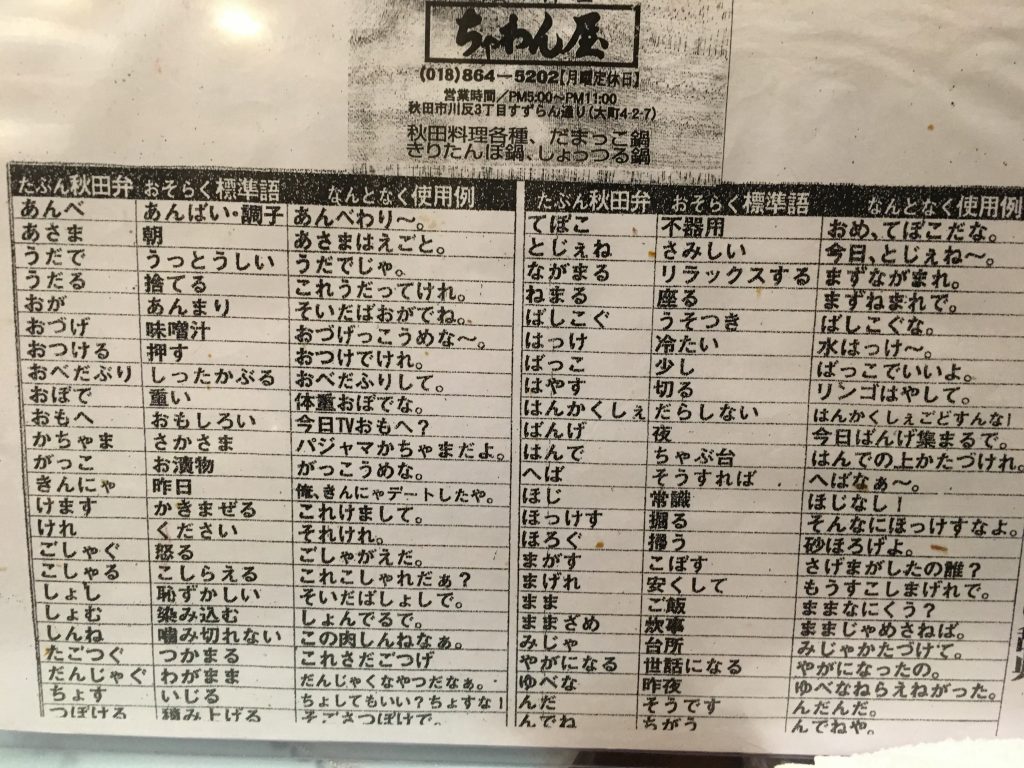 ちゃわん屋
(018)864-5202[月曜定休日]
営業時間/PM5:00~PM11:00
秋田市川反3丁目すずらん通り(大町4-2-7)
秋田料理各種、だまっこ鍋
きりたんぽ鍋、しょっつる鍋
たぶん秋田弁 おそらく標準語 なんとなく使用例
あんべ あんばい・調子 あんべわり~。
あさま 朝 あさまはえごと。
うだで うっとうしい うだでじゃ。
うだる 捨てる これうだってけれ。
おが あんまり そいだばおがでね。
おづげ 味噌汁 おづげっこうめな~。
おつける 押す おつけでけれ。
おべだぶり しったかぶる おべだふりして。
おぼで 重い 体重おぼでな。
おもへ おもしろい 今日TVおもへ?
かちゃま さかさま パジャマかちゃまだよ。
がっこ お漬物 がっこうめな。
きんにゃ 昨日 俺、きんにゃデートしたや。
けます かきまぜる これけまして。
けれ ください それけれ。
ごしゃぐ 怒る ごしゃがえだ。
こしゃる こしらえる これこしゃれだぁ?
しょし 恥ずかしい そいだばしょしで。
しょむ 染み込む しょんでるで。
しんね 噛み切れない この肉しんねなぁ。
たごつぐ つかまる これさだごつげ
だんじゃぐ わがまま だんじゃくなやつだなぁ。
ちょす いじる ちょしてもいい?ちょすな!
つぽける 積み上げる そごさつぽけで。
たぶん秋田弁 おそらく標準語 なんとなく使用例
てぼこ 不器用 おめ、てぼこだな。
とじぇね さみしい 今日、とじぇね~。
ながまる リラックスする まずながまれ。
ねまる 座る まずねまれで。
ばしこぐ うそつき ばしこぐな。
はっけ 冷たい 水はっけ~。
ばっこ 少し ばっこでいいよ。
はやす 切る リンゴはやして。
はんかくしぇ だらしない はんかくしぇごどすんな!
ばんげ 夜 今日ばんげ集まるで。
はんで ちゃぶ台 はんでの上かたづけれ。
へば そうすれば へばなぁ~。
ほじ 常識 ほじなし!
ほっけす 掘る そんなにほっけすなよ。
ほろぐ 掃う 砂ほろげよ。
まがす こぼす さげまがしたの誰?
まげれ 安くして もうすこしまげれで。
まま ご飯 ままなにくう?
ままざめ 炊事 ままじゃめさねば。
みじゃ 台所 みじゃかたづけて。
やがになる 世話になる やがになったの。
ゆべな 昨夜 ゆべなねらえねがった。
んだ そうです んだんだ。
んでね ちがう んでねや。